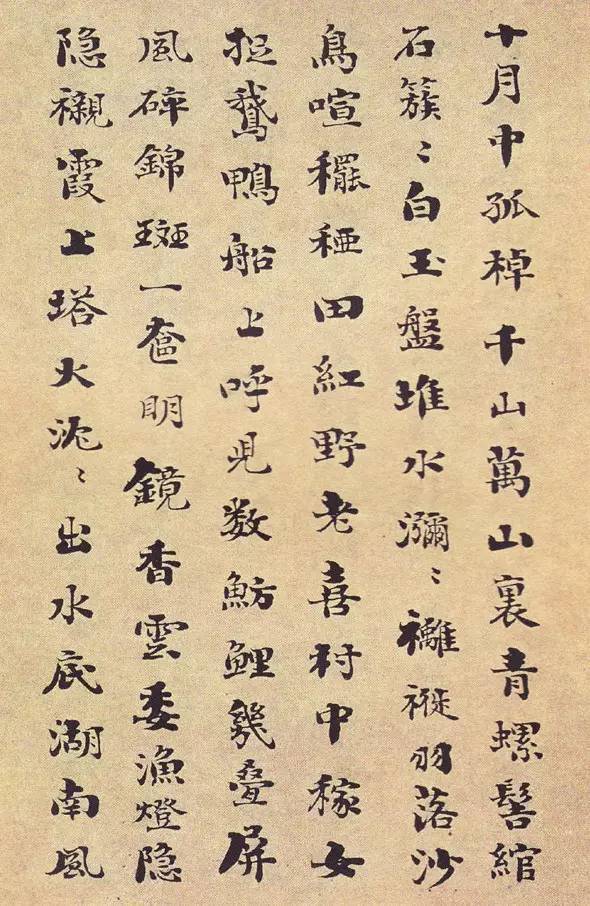 十月中孤棹千山萬山裏青螺髻綰
石簇〻白玉盤堆水瀰〻䙰褷羽落沙
鳥喧䆉稏田紅野老喜村中稼女
捉鵝鴨船上呼児数魴鯉幾疊屏
風碎錦斑一奩明鏡香雲委漁燈隐
隐襯霞上塔火沉〻出水底湖南風